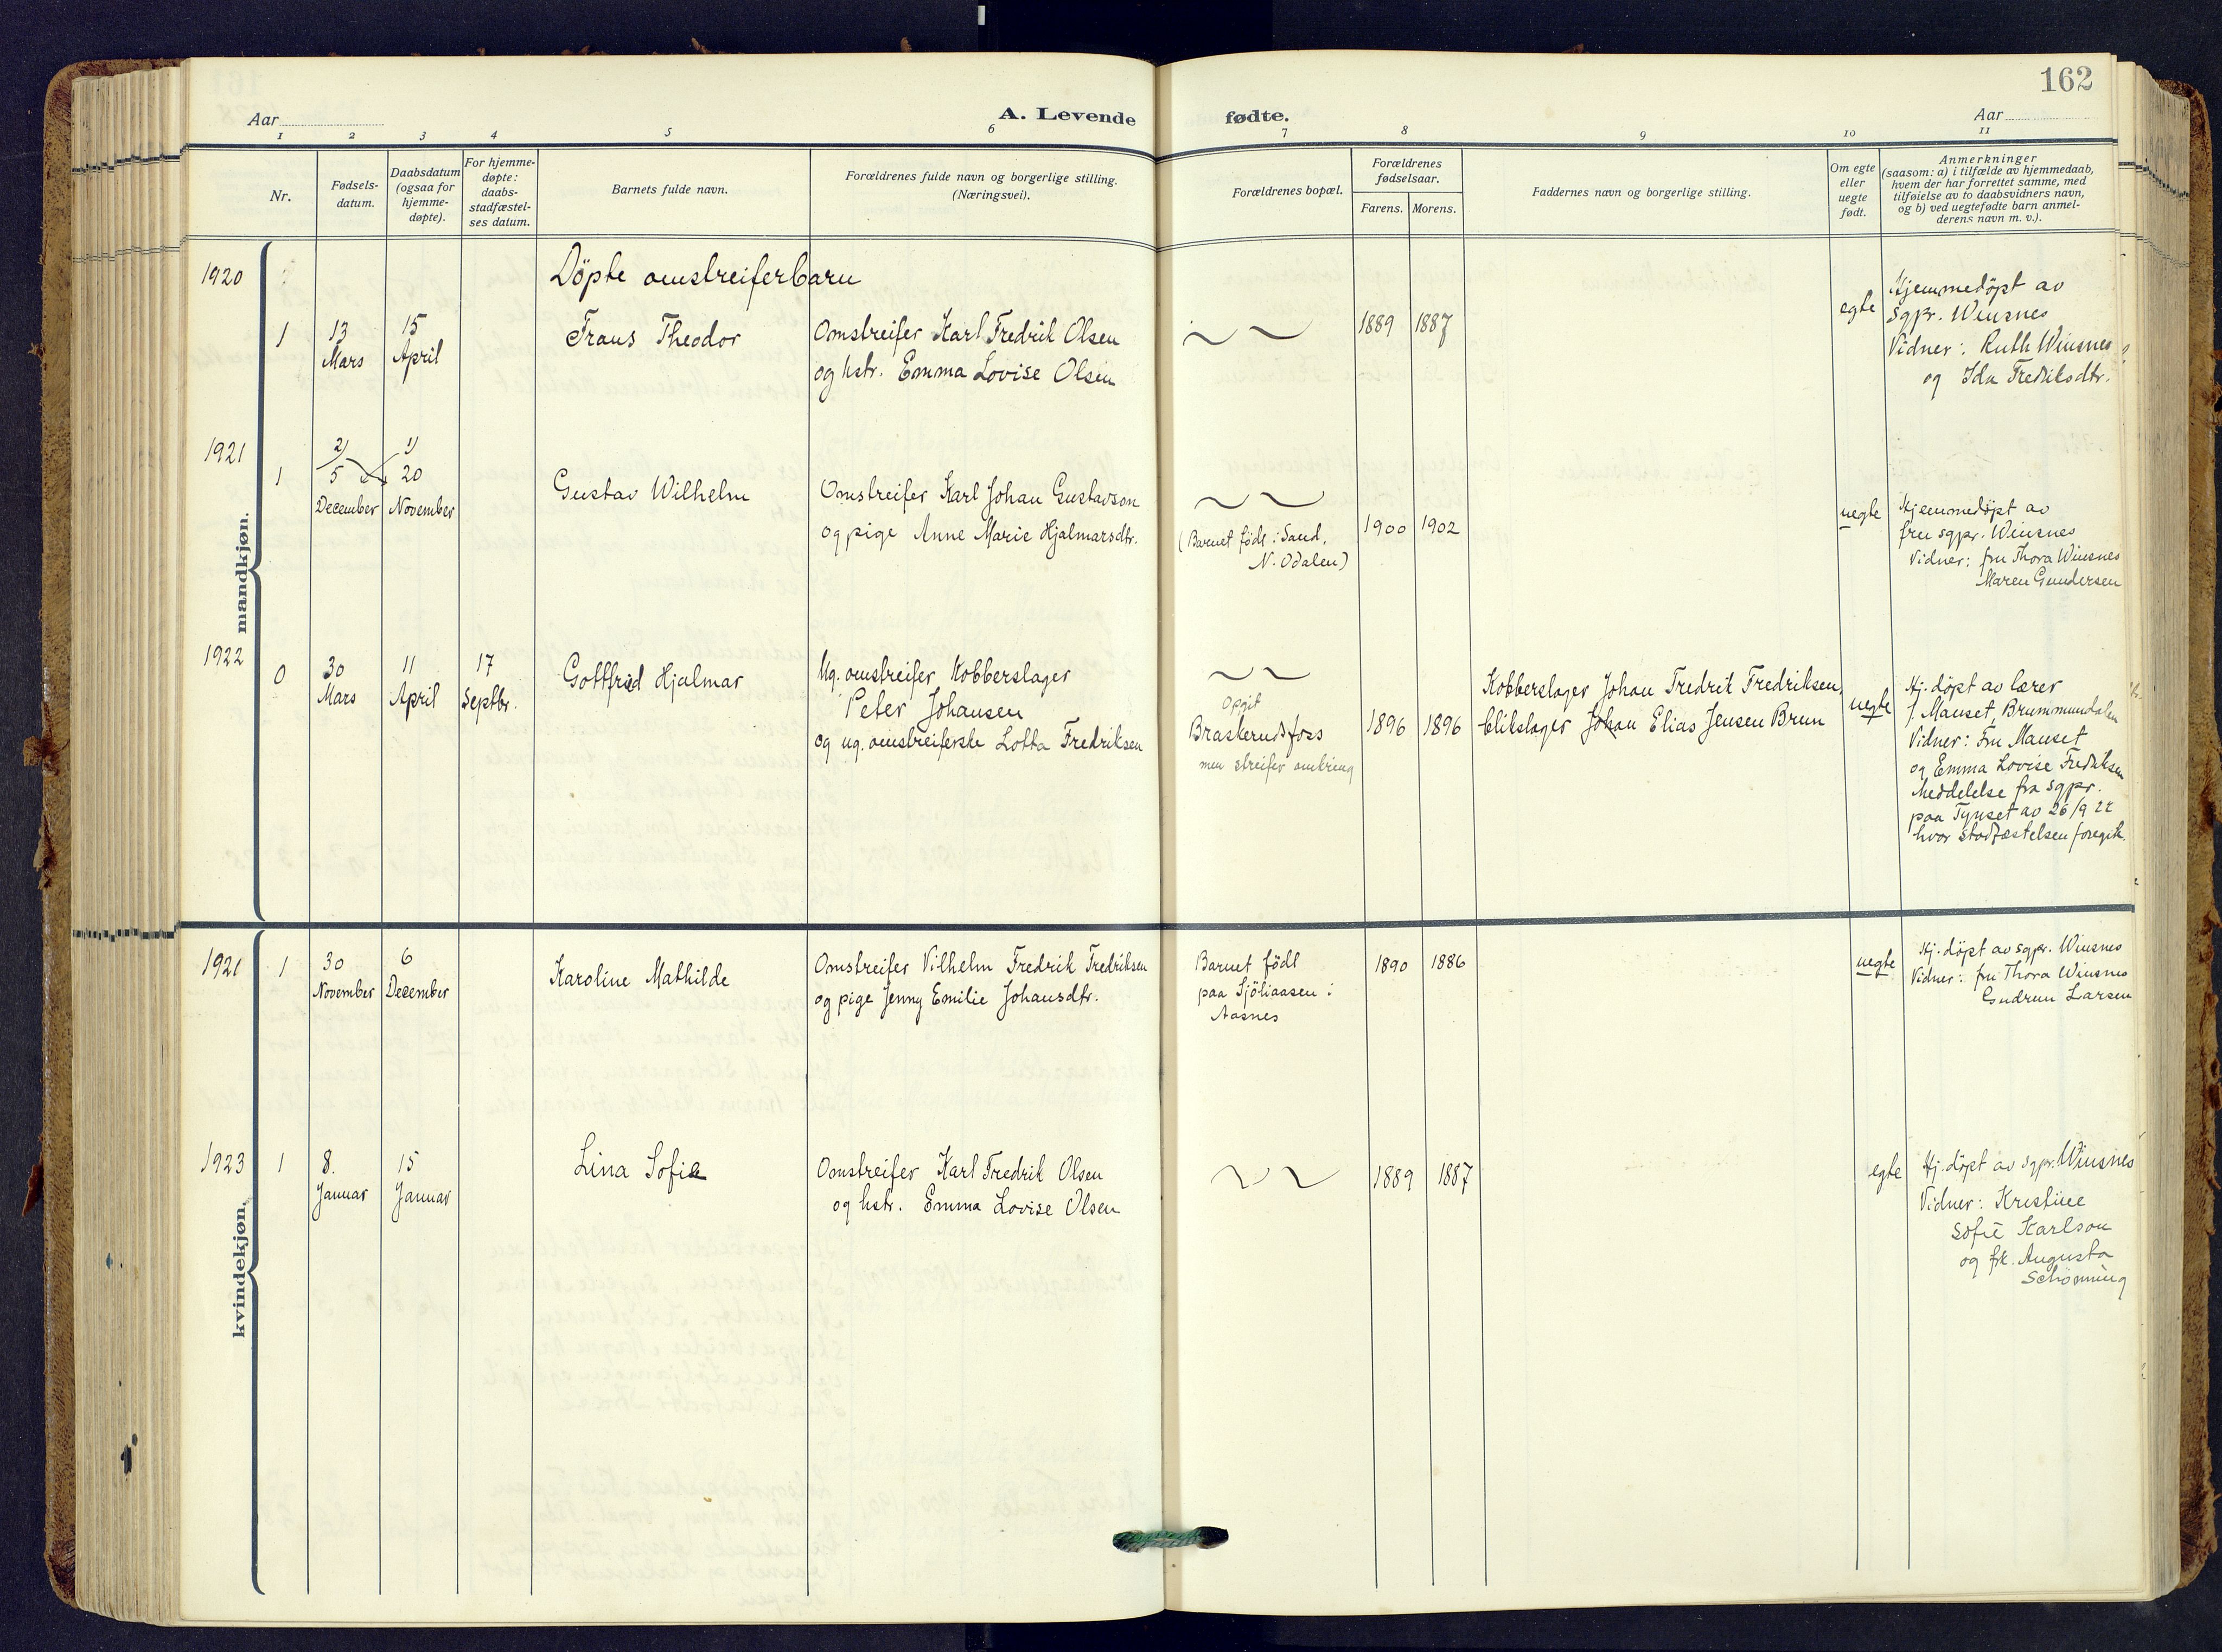 162
Aar
A. Levende
fødte.
Aar
1 2 3 4 5 6 7 8 9 10 11
Nr.
Fødsels-
datum.
Daabsdatum
(ogsaa for
hjemme-
døpte).
For hjemme-
døpte:
daabs-
stadfæstel-
ses datum.
Barnets fulde navn.
Forældrenes fulde navn og borgerlige stilling.
(Næringsvei).
Forældrenes bopæl.
Forældrenes
fødselsaar.
Farens. Morens.
Faddernes navn og borgerlige stilling.
Om egte
eller
uegte
født.
Anmerkninger
(saasom: a) i tilfælde av hjemmedaab,
hvem der har forrettet samme, med
tilføielse av to daabsvidners navn,
og b) ved uegtefødte barn anmel-
derens navn m. v.).
mandkjøn.
1920
Döpte omstreiferbarn
1
13
Mars
15
April
Frans Theodor
Omstreifer Karl Fredrik Olsen
og hstr. Emma Lovise Olsen
1889 1887
egte
Hjemmedöpt av
Sgpr. Winsnes
Vidner: Ruth Winsnes
og Ida Fredriksdtr.
1921
1
2)
5
December
1)
20
November
Gustav Wilhelm
Omstreifer Karl Johan Gustavson
og pige Anne Marie Hjalmarsdtr.
(Barnet födt i Sand,
N. Odalen)
1900 1902
uegte
Hjemmedöpt av
fru sgpr. Winsnes
Vidner: fru Thora Winsnes
Maren Gundersen
1922
0
30
Mars
11
April
17
Septbr.
Gottfred Hjalmar
Ug. omstreifer Kobberslager
Peter Johansen
og ug. omstreiferske Lotta Fredriksen
Opgit
Braskerudsfoss
men streifer omkring
1896 1896
Kobberslager Johan Fredrik Fredriksen,
blikslager Johan Elias Jensen Brun
uegte
Hj. döpt av lærer
J. Mauset, Brummundalen
Vidner: Fru Mauset
og Emma Lovise Fredriksen
Meddelelse fra sgpr.
paa Tynset av 26/9 22
hvor stadfæstelsen foregik.
kvindekjøn.
1921
1
30
November
6
December
Karoline Mathilde
Omstreifer Vilhelm Fredrik Fredriksen
og pige Jenny Emilie Johansdtr.
Barnet födt
paa Sjöliaasen i
Aasnes
1890 1886
uegte
Hj. döpt av sgpr. Winsnes
Vidner: fru Thora Winsnes
Gudrun Larsen
1923
1
8.
Januar
15
Januar
Lina Sofie
Omstreifer Karl Fredrik Olsen
og hstr. Emma Lovise Olsen
1889 1887
egte
Hj. döpt av sgpr. Winsnes
Vidner: Kristine
Sofie Karlson
og frk. Augusta
Schönning